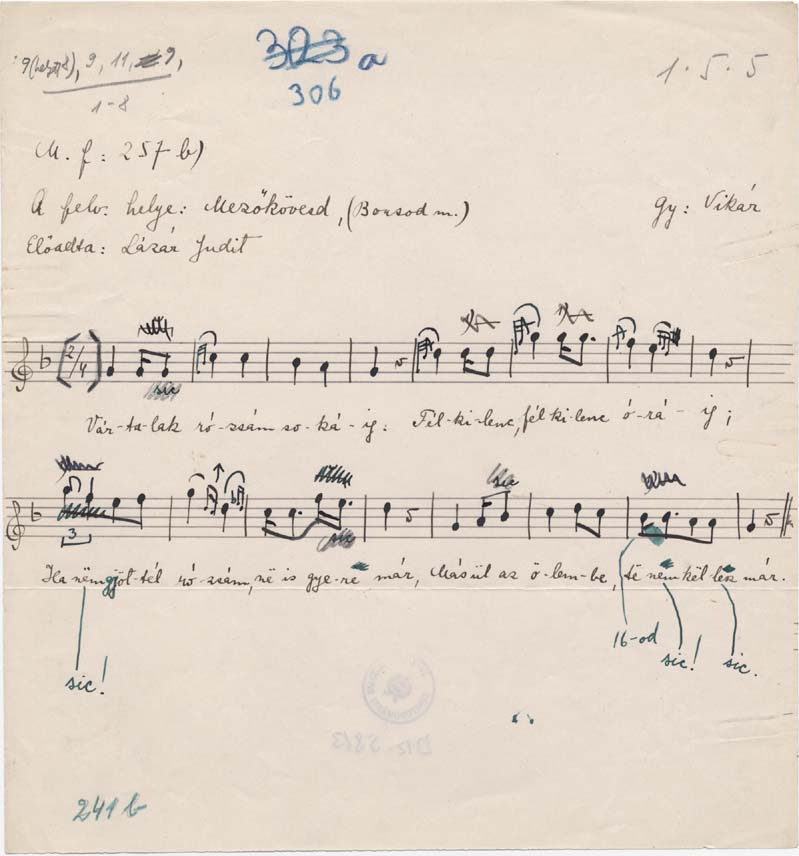 9(helyett 8), 9, 11, 9,
1-8
323 a
306
1 . 5 . 5
M. f: 257 b)
A felv. helye: Mezőkövesd, (Borsod m.)
gy: Vikár
Előadta: Lázár Judit
2/4
sic
Vár-ta-lak ró-zsám so-ká-ig: Fél-ki-lenc, fél-ki-lenc ó-rá-ig;
sic
sic
3
Ha nëmgyöt-tél ró-zsám, në is gye-re már, Másül az ö-lem-be, të nem kël-lesz már.
16-od
sic!
sic.
sic!
241 b